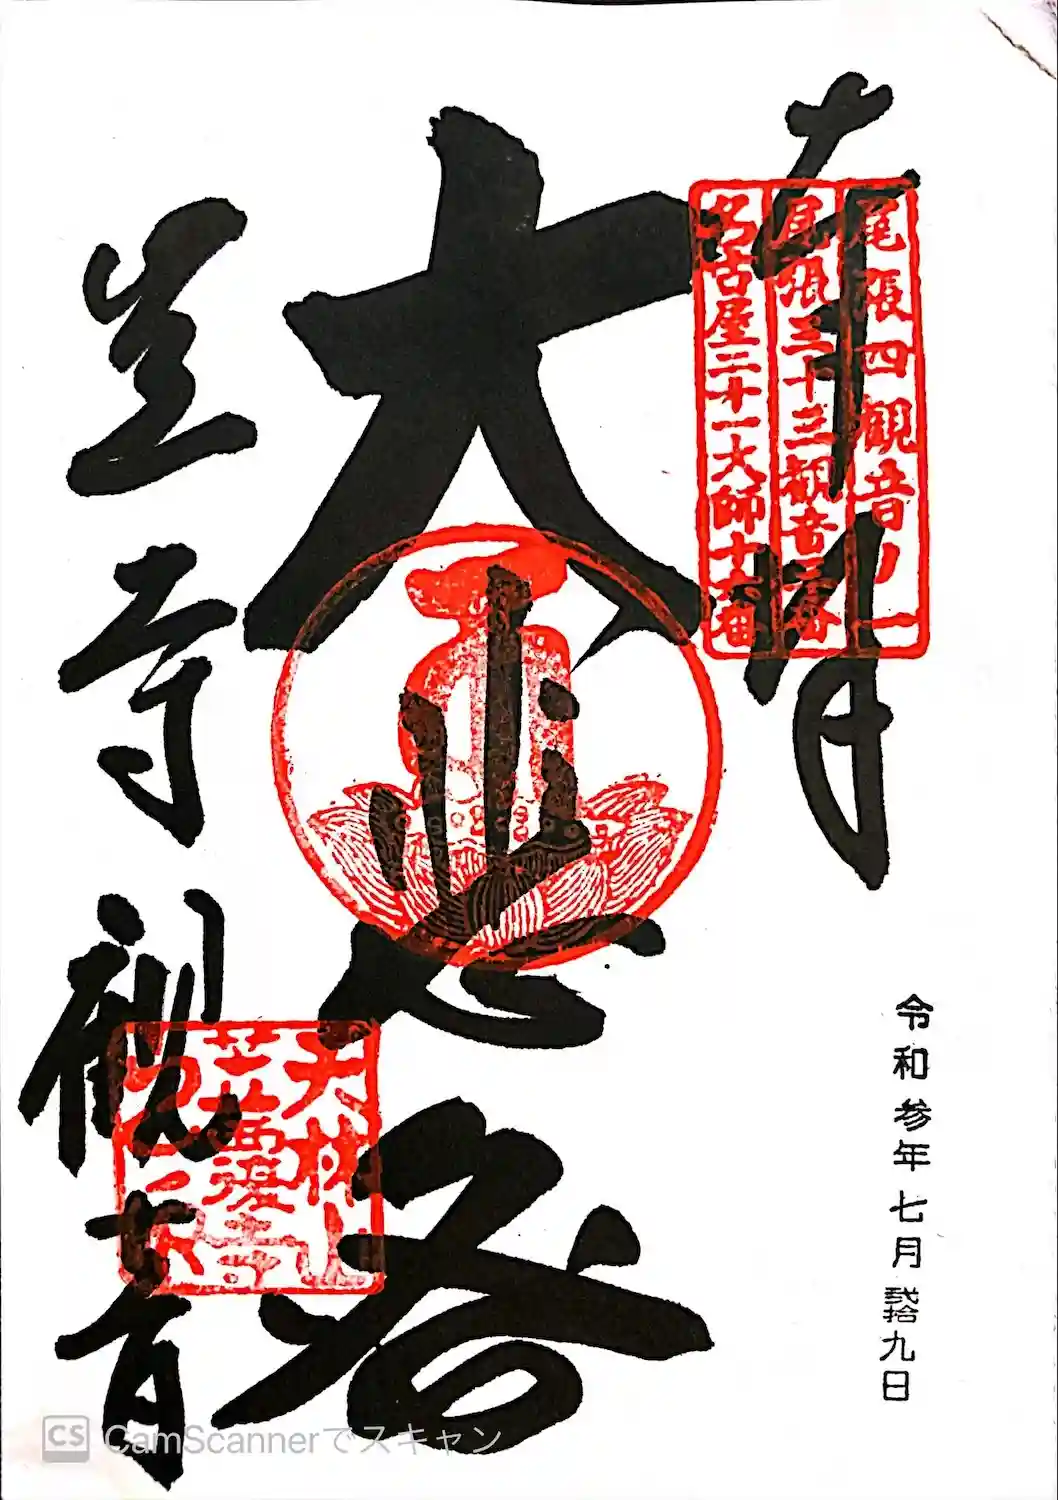 奉拝
尾張四観音ノ一
尾張三十三観音三番
名古屋二十一大師十六番
大悲閣
笠寺観音
天林山
令和参年七月弐拾九日
CS CamScannerでスキャン